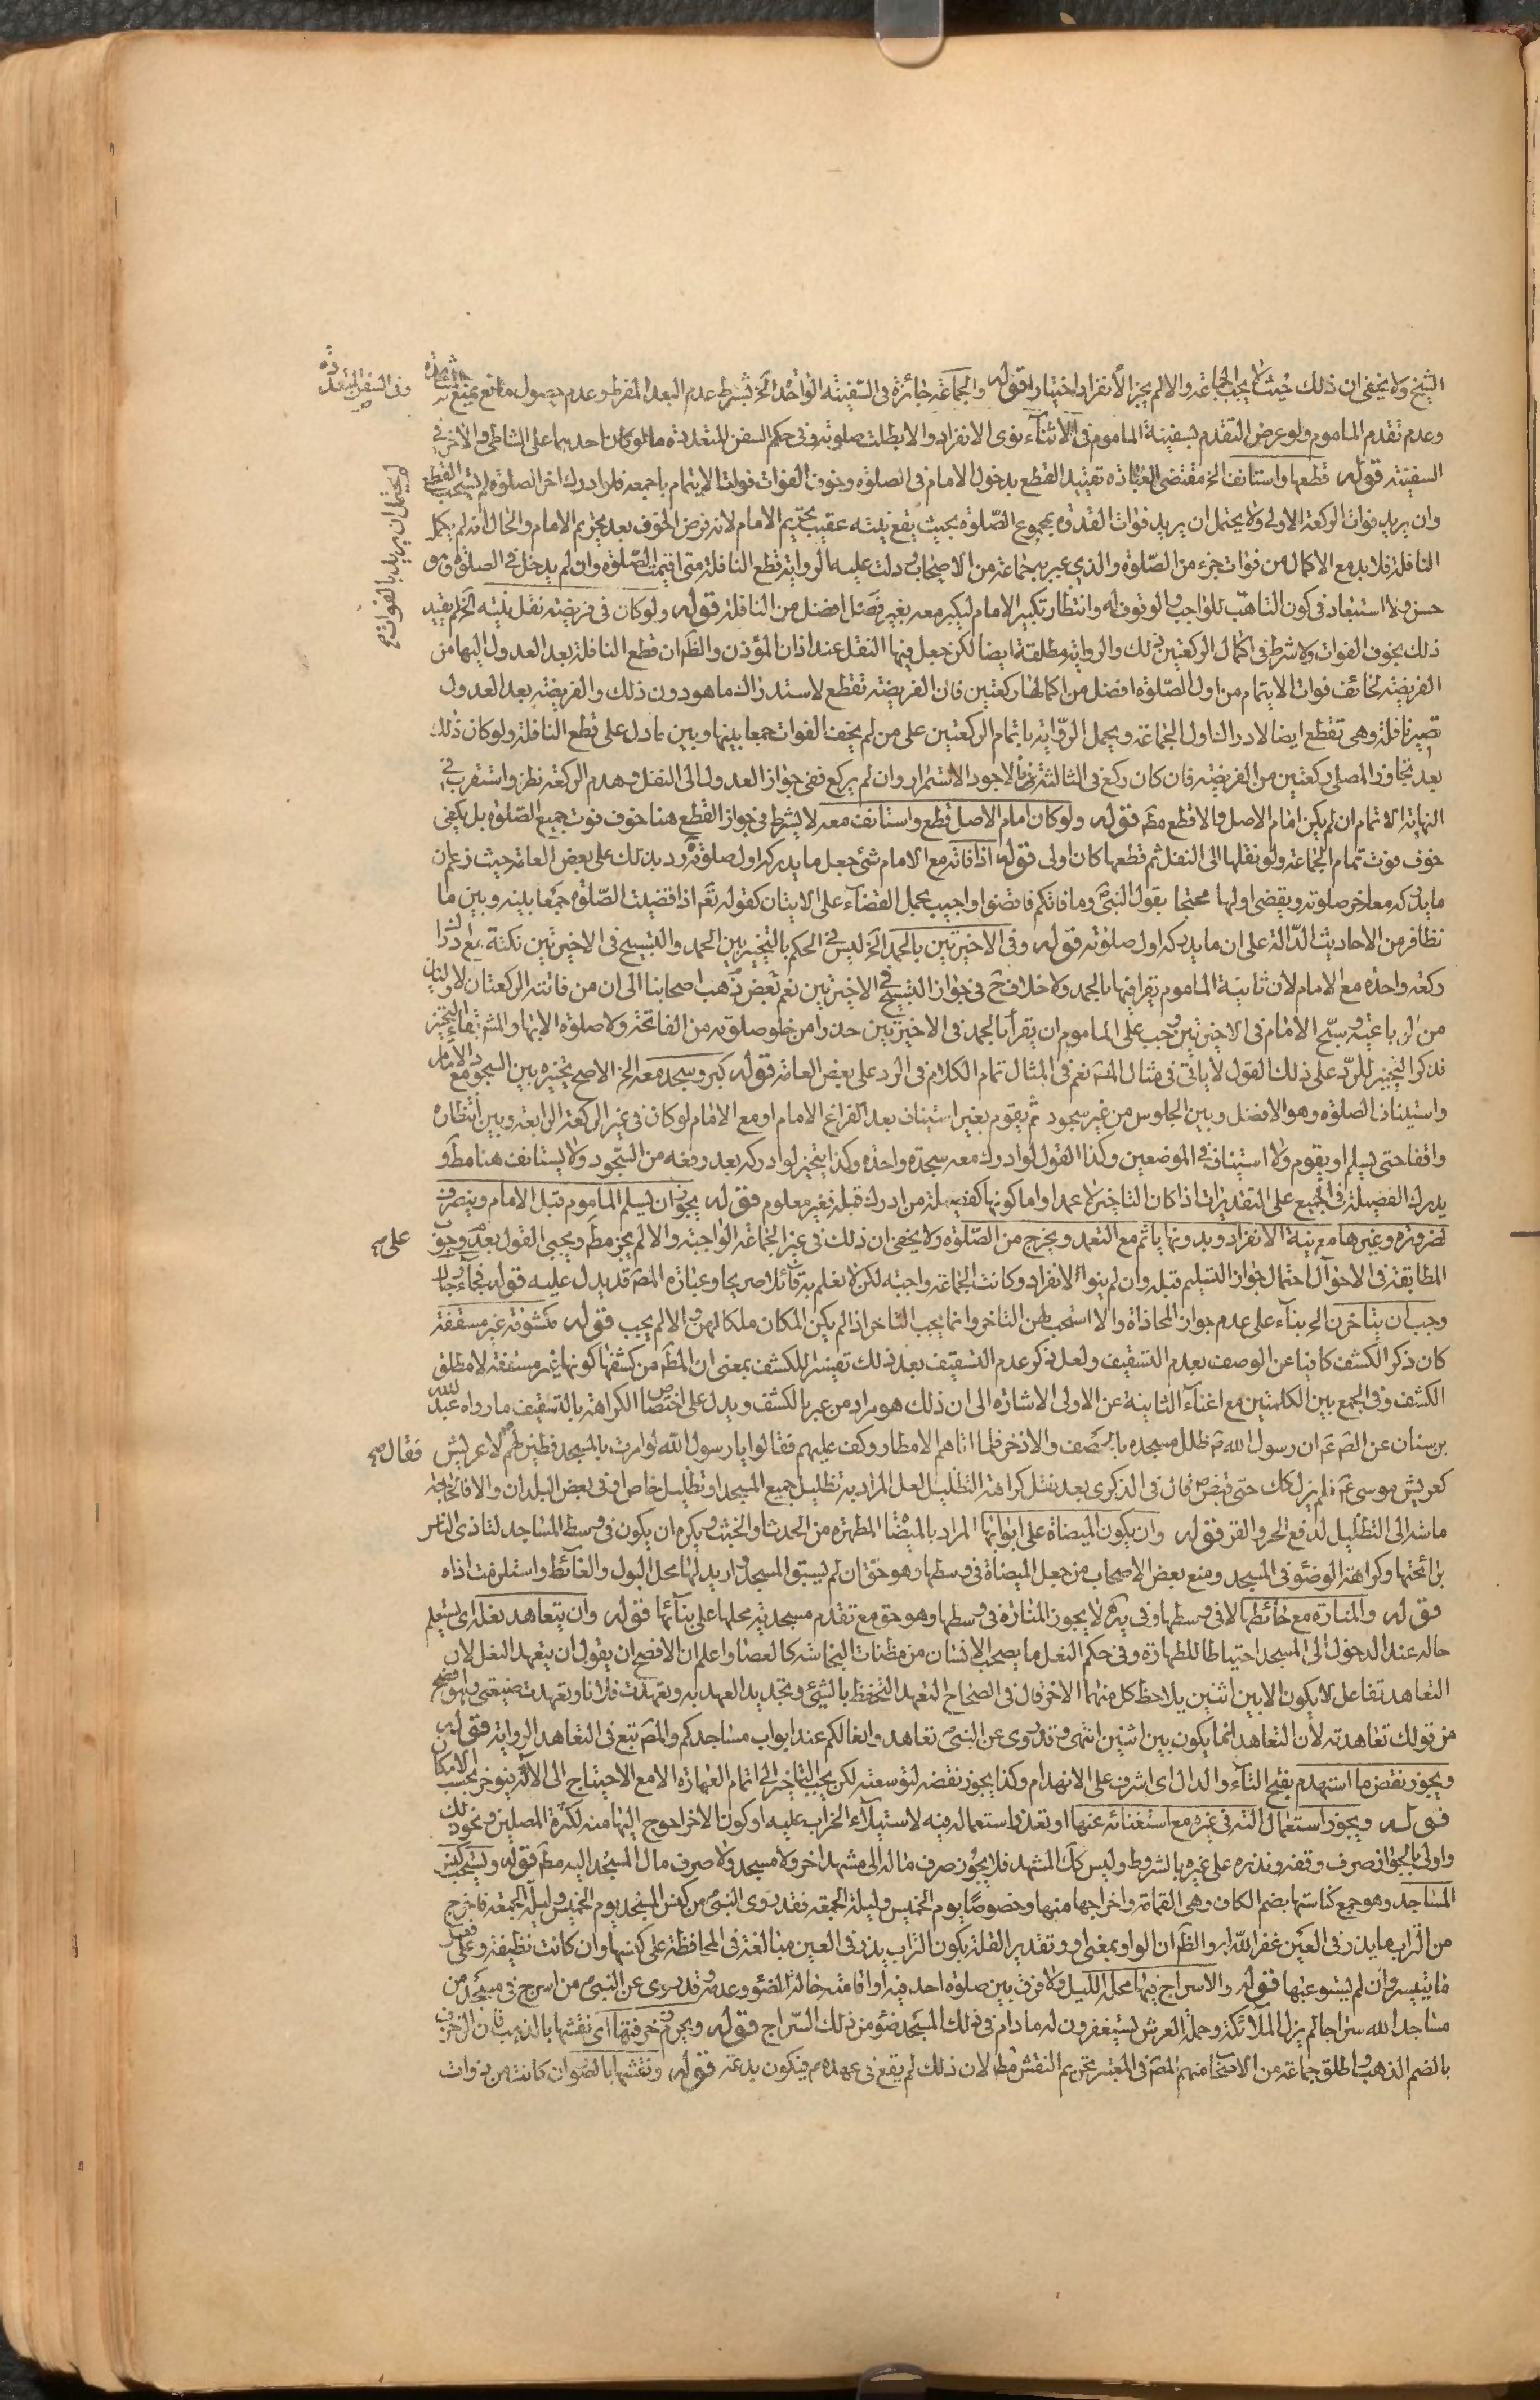 الشيخ ولا يخفى ان ذلك حيث لا يجب الجماعة والا لم يجز الانفراد اختيارا قوله والجماعة جائزة في السفينة الواحدة الخ بشرط عدم البعد المفرط وعدم حصول مانع يمنع مشاهدة
وفي السفن المتعددة
وعدم تقدم الماموم ولو عرض التقدم لسفينة الماموم في الاثناء نوى الانفراد والا بطلت صلوته وفي حكم السفن المتعددة ما لو كان احدهما على الشاطئ والاخر في
السفينة قوله قطعها واستانف الخ مقتضى العبارة تقييد القطع بدخول الامام في الصلوة وخوف الفوات فوات الايتمام باجمعه فلو ادرك اخر الصلوة لم يستحب القطع
وان يريد فوات الركعة الاولى ولا يحتمل ان يريد فوات القدوة بمجموع الصلوة بحيث يقع نيته عقيب تحريم الامام لانه فرض الخوف بعد تحريم الامام والحال انه لم يكمل
ويحتمل ان يريد بالفوات
النافلة فلا بد مع الاكمال من فوات جزء من الصلوة والذي عبر به جماعة من الاصحاب ودلت عليه الرواية قطع النافلة متى اقيمت الصلوة وان لم يدخل في الصلوة وهو
حسن ولا استبعاد في كون التاهب للواجب والوقوف له وانتظار تكبير الامام ليكبر معه بغير فصل افضل من النافلة قوله ولو كان في فريضة نقل نيته الخ لم يقيد
ذلك بخوف الفوات ولا شرط في اكمال الركعتين ذلك والرواية مطلقة ايضا لكن جعل فيها النقل عند اذان المؤذن والظ ان قطع النافلة بعد العدول اليها من
الفريضة لخائف فوات الايتمام من اول الصلوة افضل من اكمالها ركعتين فان الفريضة تقطع لاستدراك ما هو دون ذلك والفريضة بعد العدول
تصير نافلة وهي تقطع ايضا لادراك اول الجماعة ويحمل الرواية باتمام الركعتين على من لم يخف الفوات جمعا بينها وبين ما دل على قطع النافلة ولو كان ذلك
بعد تجاوز المصلي ركعتين من الفريضة فان كان ركع في الثالثة فالاجود الاستمرار وان لم يركع ففي جواز العدول الى النفل وهدم الركعة نظر واستقرب في
النهاية الاتمام ان لم يكن امام الاصل والا قطع مط قوله ولو كان امام الاصل قطع واستانف معه لا يشترط في جواز القطع هنا خوف فوت جميع الصلوة بل يكفي
خوف فوت تمام الجماعة ولو نقلها الى النفل ثم قطعها كان اولى قوله اذا فاته مع الامام شئ جعل ما يدركه اول صلوته رد بذلك على بعض العامة حيث زعم ان
ما يدركه معه اخر صلوته ويقضي اولها محتجا بقول النبي ص وما فاتكم فاقضوا واجيب بحمل القضاء على الاتيان كقوله تع اذا قضيت الصلوة جمعا بينه وبين ما
تظافر من الاحاديث الدالة على ان ما يدركه اول صلوته قوله وفي الاخيرتين بالحمد الخ ليس في الحكم بالتخيير بين الحمد والتسبيح في الاخيرتين نكتة مع ادراك
ركعة واحدة مع الامام لان ثانية الماموم يقرا فيها بالحمد ولا خلاف ح في جواز التسبيح في الاخيرتين نعم بعض ذهب اصحابنا الى ان من فاتته الركعتان الاوليان
من الرباعية وسبح الامام في الاخيرتين وجب على الماموم ان يقرا بالحمد في الاخيرتين حذرا من خلو صلوته من الفاتحة ولا صلوة الا بها والمش بقاء التخيير
فذكر التخيير للرد على ذلك القول لا ياتي في مثال المص نعم في المثال تمام الكلام في الرد على بعض العامة قوله كبر وسجد معه الخ الاصح تخييره بين السجود مع الامام
واستيناف الصلوة وهو الافضل وبين الجلوس من غير سجود ثم يقوم بغير استيناف بعد الفراغ الامام او مع الامام لو كان في غير الركعة الرابعة وبين انتظاره
واقفا حتى يسلم او يقوم ولا استيناف في الموضعين وكذا القول لو ادرك معه سجدة واحدة وكذا يتخير لو ادركه بعد رفعه من السجود ولا يستانف هنا مط و
يدرك الفضيلة في الجميع على التقديرات اذا كان التاخير لا عمدا واما كونها كفضيلة من ادرك قبله فغير معلوم قوله يجوز ان يسلم الماموم قبل الامام وينصرف
لضرورة وغيرها مع نية الانفراد وبدونها ياثم مع التعمد ويخرج من الصلوة ولا يخفى ان ذلك في غير الجماعة الواجبة والا لم يجز مط ويجئ القول بعدم وجوب
على
المطابقة في الاحوال احتمال جواز التسليم قبله وان لم ينو الانفراد وكانت الجماعة واجبة لكن لا نعلم به قائلا صريحا وعبارة المص قد يدل عليه قوله فجاء رجال
وجب ان يتاخرن الخ بناء على عدم جواز المحاذاة والا استحب لهن التاخر وانما يجب التاخر اذا لم يكن المكان ملكا لهن والا لم يجب قوله مكشوفة غير مسقفة
كان ذكر الكشف كافيا عن الوصف بعدم التسقيف ولعل ذكر عدم التسقيف بعد ذلك تفسيرا للكشف بمعنى ان المظ من كشفها كونها غير مسقفة لا مطلق
الكشف وفي الجمع بين الكلمتين مع اغناء الثانية عن الاولى الاشارة الى ان ذلك هو مراد من عبر بالكشف ويدل على اختصاص الكراهة بالتسقيف ما رواه عبد الله
بن سنان عن الص ع ان رسول الله ص ظلل مسجده بالخصف والاذخر فلما اتاهم الامطار وكف عليهم فقالوا يا رسول الله لو امرت بالمسجد فطين لا عريش
فقال
كعريش موسى ع فلم يزل كك حتى قبض ص قال في الذكرى بعد نقل كراهة التظليل لعل المراد به تظليل جميع المسجد او تظليل خاص او في بعض البلدان والا فالحاجة
ماسة الى التظليل لدفع الحر والقر قوله وان يكون الميضاة على ابوابها المراد بالميضاة المطهرة من الحدث والخبث ويكره ان يكون في وسط المساجد لتاذي الناس
برائحتها وكراهة الوضوء في المسجد ومنع بعض الاصحاب من جعل الميضاة في وسطها وهو حق ان لم يسبق المسجد واريد لها محل البول والغائط واستلزمت اذاه
قوله والمنارة مع حائطها لا في وسطها وفي يه لا يجوز المنارة في وسطها وهو حق مع تقدم مسجدية محلها على بنائها قوله وان يتعاهد نعله اي يستعلم
حاله عند الدخول الى المسجد احتياطا للطهارة وفي حكم النعل ما يصحب الانسان من مظنات النجاسة كالعصا واعلم ان الافصح ان يقول ان يتعهد النعل لان
التعاهد تفاعل لا يكون الا بين اثنين يلاحظ كل منهما الاخر قال في الصحاح التعهد التحفظ بالشئ وتجديد العهد به وتعهدت فلانا وتعهدت ضيعتي وهو افصح
من قولك تعاهدته لان التعاهد انما يكون بين اثنين انتهى وقد روى عن النبي ص تعاهدوا نعالكم عند ابواب مساجدكم والمص تبع في التعاهد الرواية قوله
ويجوز نقض ما استهدم بفتح التاء والدال اي اشرف على الانهدام وكذا يجوز نقضه لتوسعته لكن يجب التاخير الى اتمام العمارة الا مع الاحتياج الى الالة فيؤخر بحسب الامكان
قوله ويجوز استعمال الته في غيره مع استغنائه عنها او تعذر استعماله فيه لاستيلاء الخراب عليه او كون الاخر احوج اليها منه لكثرة المصلين ونحو ذلك
واولى بالجواز صرف وقفه ونذره على غيره بالشروط وليس كك المشهد فلا يجوز صرف ماله الى مشهد اخر ولا مسجد ولا صرف مال المسجد اليه مط قوله ويستحب كنس
المساجد وهو جمع كناستها بضم الكاف وهي القمامة واخراجها منها وخصوصا يوم الخميس وليلة الجمعة فقد روى النبي من كنس المسجد يوم الخميس وليلة الجمعة فاخرج
من التراب ما يذر في العين غفر الله له والظ ان الواو بمعنى او وتقدير القلة بكون التراب يذر في العين مبالغة في المحافظة على كنسها وان كانت نظيفة وعلى فعل
ما تيسر وان لم يستوعبها قوله والاسراج فيها محله الليل ولا فرق بين صلوة احد فيه او اقامته حالة الضوء وعدمه وقد روى عن النبي ص من اسرج في مسجد من
مساجد الله سراجا لم يزل الملائكة وحملة العرش يستغفرون له ما دام في ذلك المسجد ضوء من ذلك السراج قوله ويحرم زخرفتها اي نقشها بالذهب فان الزخرف
بالضم الذهب واطلق جماعة من الاصحاب منهم المص في المعتبر تحريم النقش مط لان ذلك لم يقع في عهده ص فيكون بدعة قوله ونقشها بالصور ان كانت من ذوات